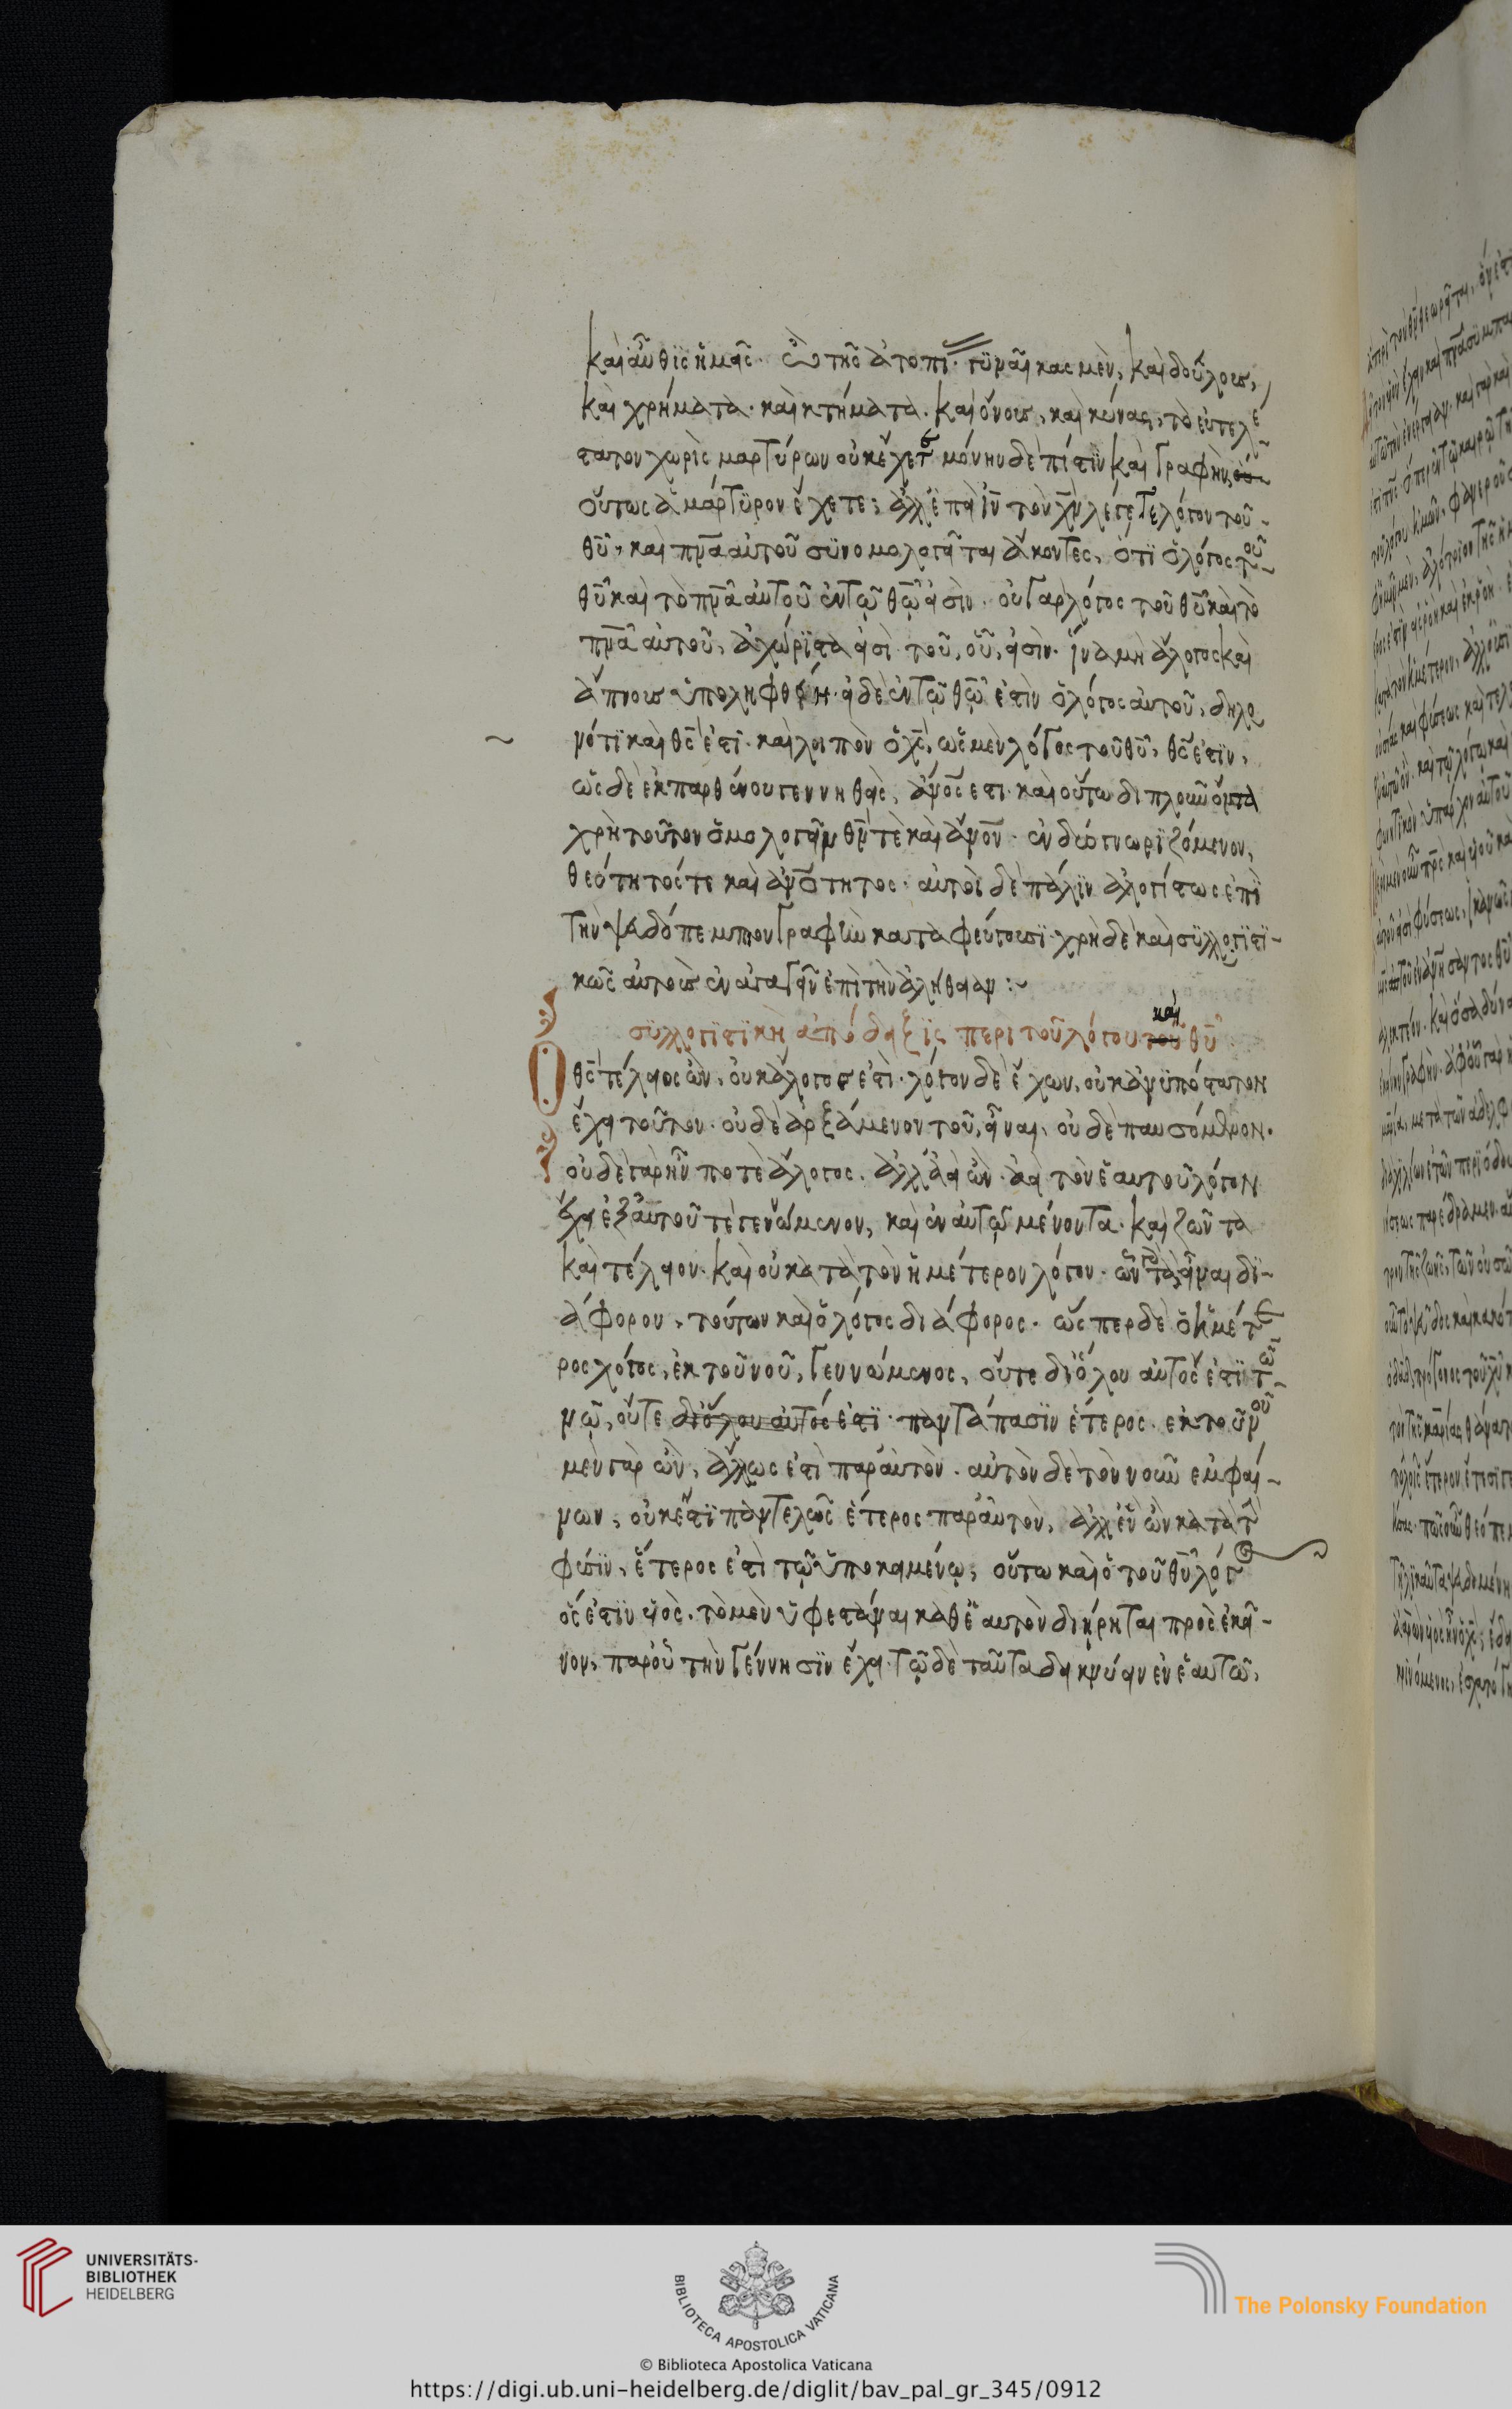 καὶ αὖθις ἡμᾶς. ὢ τῆς ἀτοπί. γυναῖκας μὲν, καὶ δούλους,
καὶ χρήματα. καὶ κτήματα. καὶ ὄνους, καὶ κύνας, τὸ εὐτελέ
στατον χωρὶς μαρτύρων οὐκ ἔχετε μόνην δὲ πίστιν καὶ γραφὴν
οὕτως ἀμάρτυρον ἔχετε; ἀλλ' ἐπεὶ ιν τὸν χν λέγετε λόγον τοῦ
θυ, καὶ πνα αὐτοῦ συνομολογεῖται ἄκοντες, ὅτι ὁ λόγος τοῦ
θυ καὶ τὸ πνα αὐτοῦ ἐν τῷ θω εἰσὶν. οὐ γὰρ λόγος τοῦ θυ καὶ τὸ
πνα αὐτοῦ, ἀχώριστα εἰσὶ τοῦ, οὗ, εἰσὶν. ἵνα μὴ ἄλογος καὶ
ἄπνους ὑποληφθείη. εἰ δὲ ἐν τῷ θω ἐστὶν ὁ λόγος αὐτοῦ, δηλο
νότι καὶ θς ἐστι. καὶ λοιπὸν ὁ χς, ὡς μὲν λόγος τοῦ θυ, θς ἐστιν,
ὡς δὲ ἐκ παρθένου γεννηθεὶς, ανος ἐστι. καὶ οὕτω διπλοῦν ὄντα
χρὴ τοῦτον ὁμολογεῖν θν τὲ καὶ ανον. ἐν δυσὶ γνωριζόμενον,
θεότητός τε καὶ ανότητος. αὐτοὶ δὲ πάλιν ἀλογίστως ἐπὶ
τὴν ψευδόπεμπτον γραφὴν καταφεύγουσι. χρὴ δὲ καὶ συλλογιστι-
κῶς αὐτοὺς ἐναγαγεῖν ἐπὶ τὴν ἀλήθειαν :~
συλλογιστικὴ ἀπόδειξις περὶ τοῦ λόγου τοῦ καὶ θυ
Ὁ θς τέλειος ὢν, οὐκ ἄλογος ἐστὶ. λόγον δὲ ἔχων, οὐκ ἀνυπόστατον
ἕξει τοῦτον. οὐδὲ ἀρξάμενον τοῦ, εἶναι, οὐδὲ παυσόμενον.
οὐδὲ γὰρ ἦν ποτὲ ἄλογος. ἀλλ' ἀεὶ ὢν. ἀεὶ τὸν ἑαυτοῦ λόγον
ἔχει ἐξ αὐτοῦ τὲ γενώμενον, καὶ ἐν αὐτῷ μένοντα. καὶ ζῶντα
καὶ τέλειον. καὶ οὐ κατὰ τὸν ἡμέτερον λόγον. ὧν γὰρ τὸ εἶναι δι-
άφορον, τούτων καὶ ὁ λόγος διάφορος. ὥς περ δὲ ὁ ἡμέτε
ρος λόγος, ἐκ τοῦ νοῦ, γεννώμενος, οὔτε διόλου αὐτός ἐστι τῷ
νῷ, οὔτε διόλου αὐτός ἐστι παντάπασιν ἕτερος. ἐκ τοῦ νοῦ
μὲν γὰρ ὢν, ἄλλος ἐστὶ παρ' αὐτὸν. αὐτὸν δὲ τὸν νοῦν ἐμφαί-
νων, οὐκέτι παντελῶς ἕτερος παρ' αὐτὸν, ἀλλ' ἓν ὢν κατὰ τὴν
φύσιν, ἕτερος ἐστὶ τῷ ὑποκειμένῳ, οὕτω καὶ ὁ τοῦ θυ λόγος
ὅς ἐστιν υἱὸς. τὸ μὲν ὑφεστάναι καθ' ἑαυτὸν διῄρηται πρὸς ἐκεῖ-
νον, παρ' οὗ τὴν γέννησιν ἔχει. τῷ δὲ ταῦτα δεικνύειν ἐν ἑαυτῷ,
UNIVERSITÄTS-
BIBLIOTHEK
HEIDELBERG
BIBLIOTECA APOSTOLICA VATICANA
The Polonsky Foundation
© Biblioteca Apostolica Vaticana
https://digi.ub.uni-heidelberg.de/diglit/bav_pal_gr_345/0912